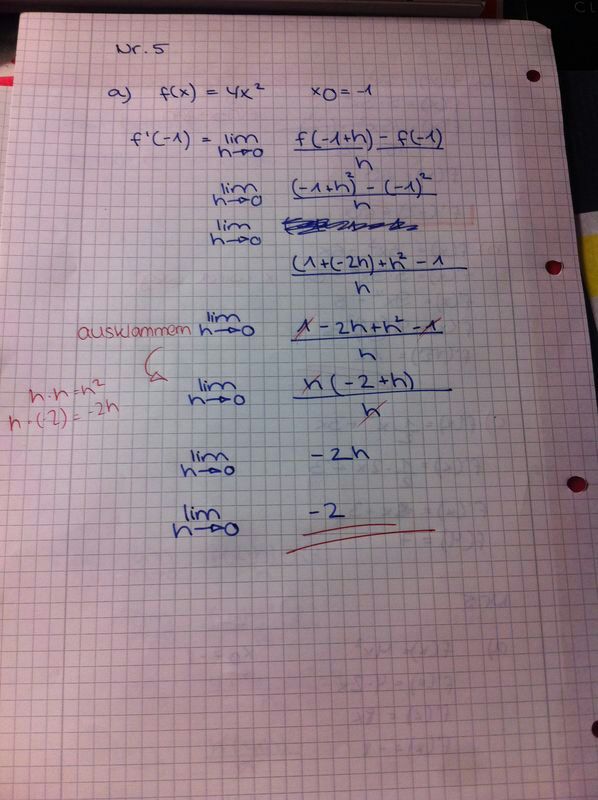 Nr. 5
a) f(x) = 4x² x0 = -1
f'(-1) = lim h→0 f(-1+h) - f(-1) / h
lim h→0 (-1+h)² - (-1)² / h
lim h→0
(1+(-2h)+h² - 1 / h
ausklammern lim h→0 1 - 2h + h² - 1 / h
h·h = h²
h·(-2) = -2h
lim h→0 h(-2+h) / h
lim h→0 -2h
lim h→0 -2